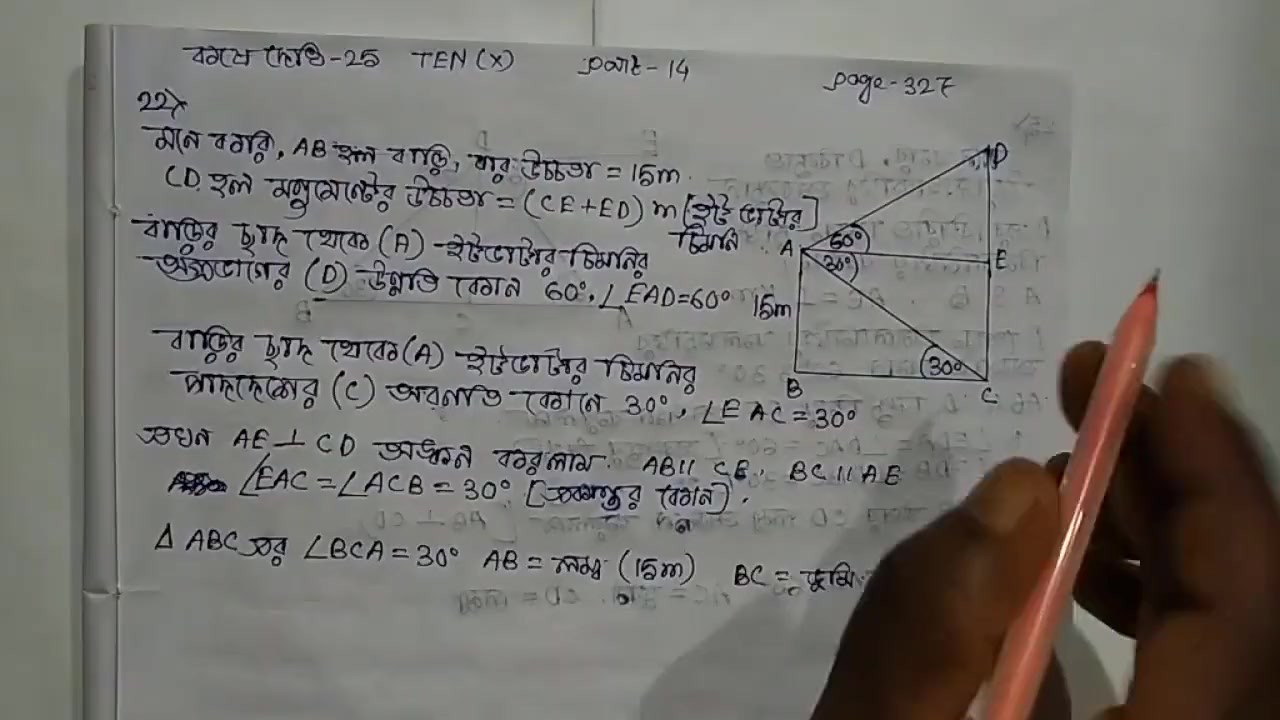 কষে দেখি-25 TEN (X) part-14 page-327
22)
মনে করি, AB হল বাড়ি, যার উচ্চতা = 15m.
CD হল মনুমেন্টের উচ্চতা = (CE+ED) m [ইট ভাটার
চিমনি]
বাড়ির ছাদ থেকে (A) ইটভাটার চিমনির
অগ্রভাগের (D) উন্নতি কোন 60°. ∠EAD=60°
বাড়ির ছাদ থেকে (A) ইটভাটার চিমনির
পাদদেশের (C) অবনতি কোনে 30°, ∠EAC = 30°
এখন AE⊥CD অঙ্কন করলাম. AB॥ CE, BC॥AE
∠EAC = ∠ACB = 30° [একান্তর কোন].
Δ ABC এর ∠BCA = 30° AB = লম্ব (15m) BC = ভূমি
D
A 60° E
30°
15m
B 30° C